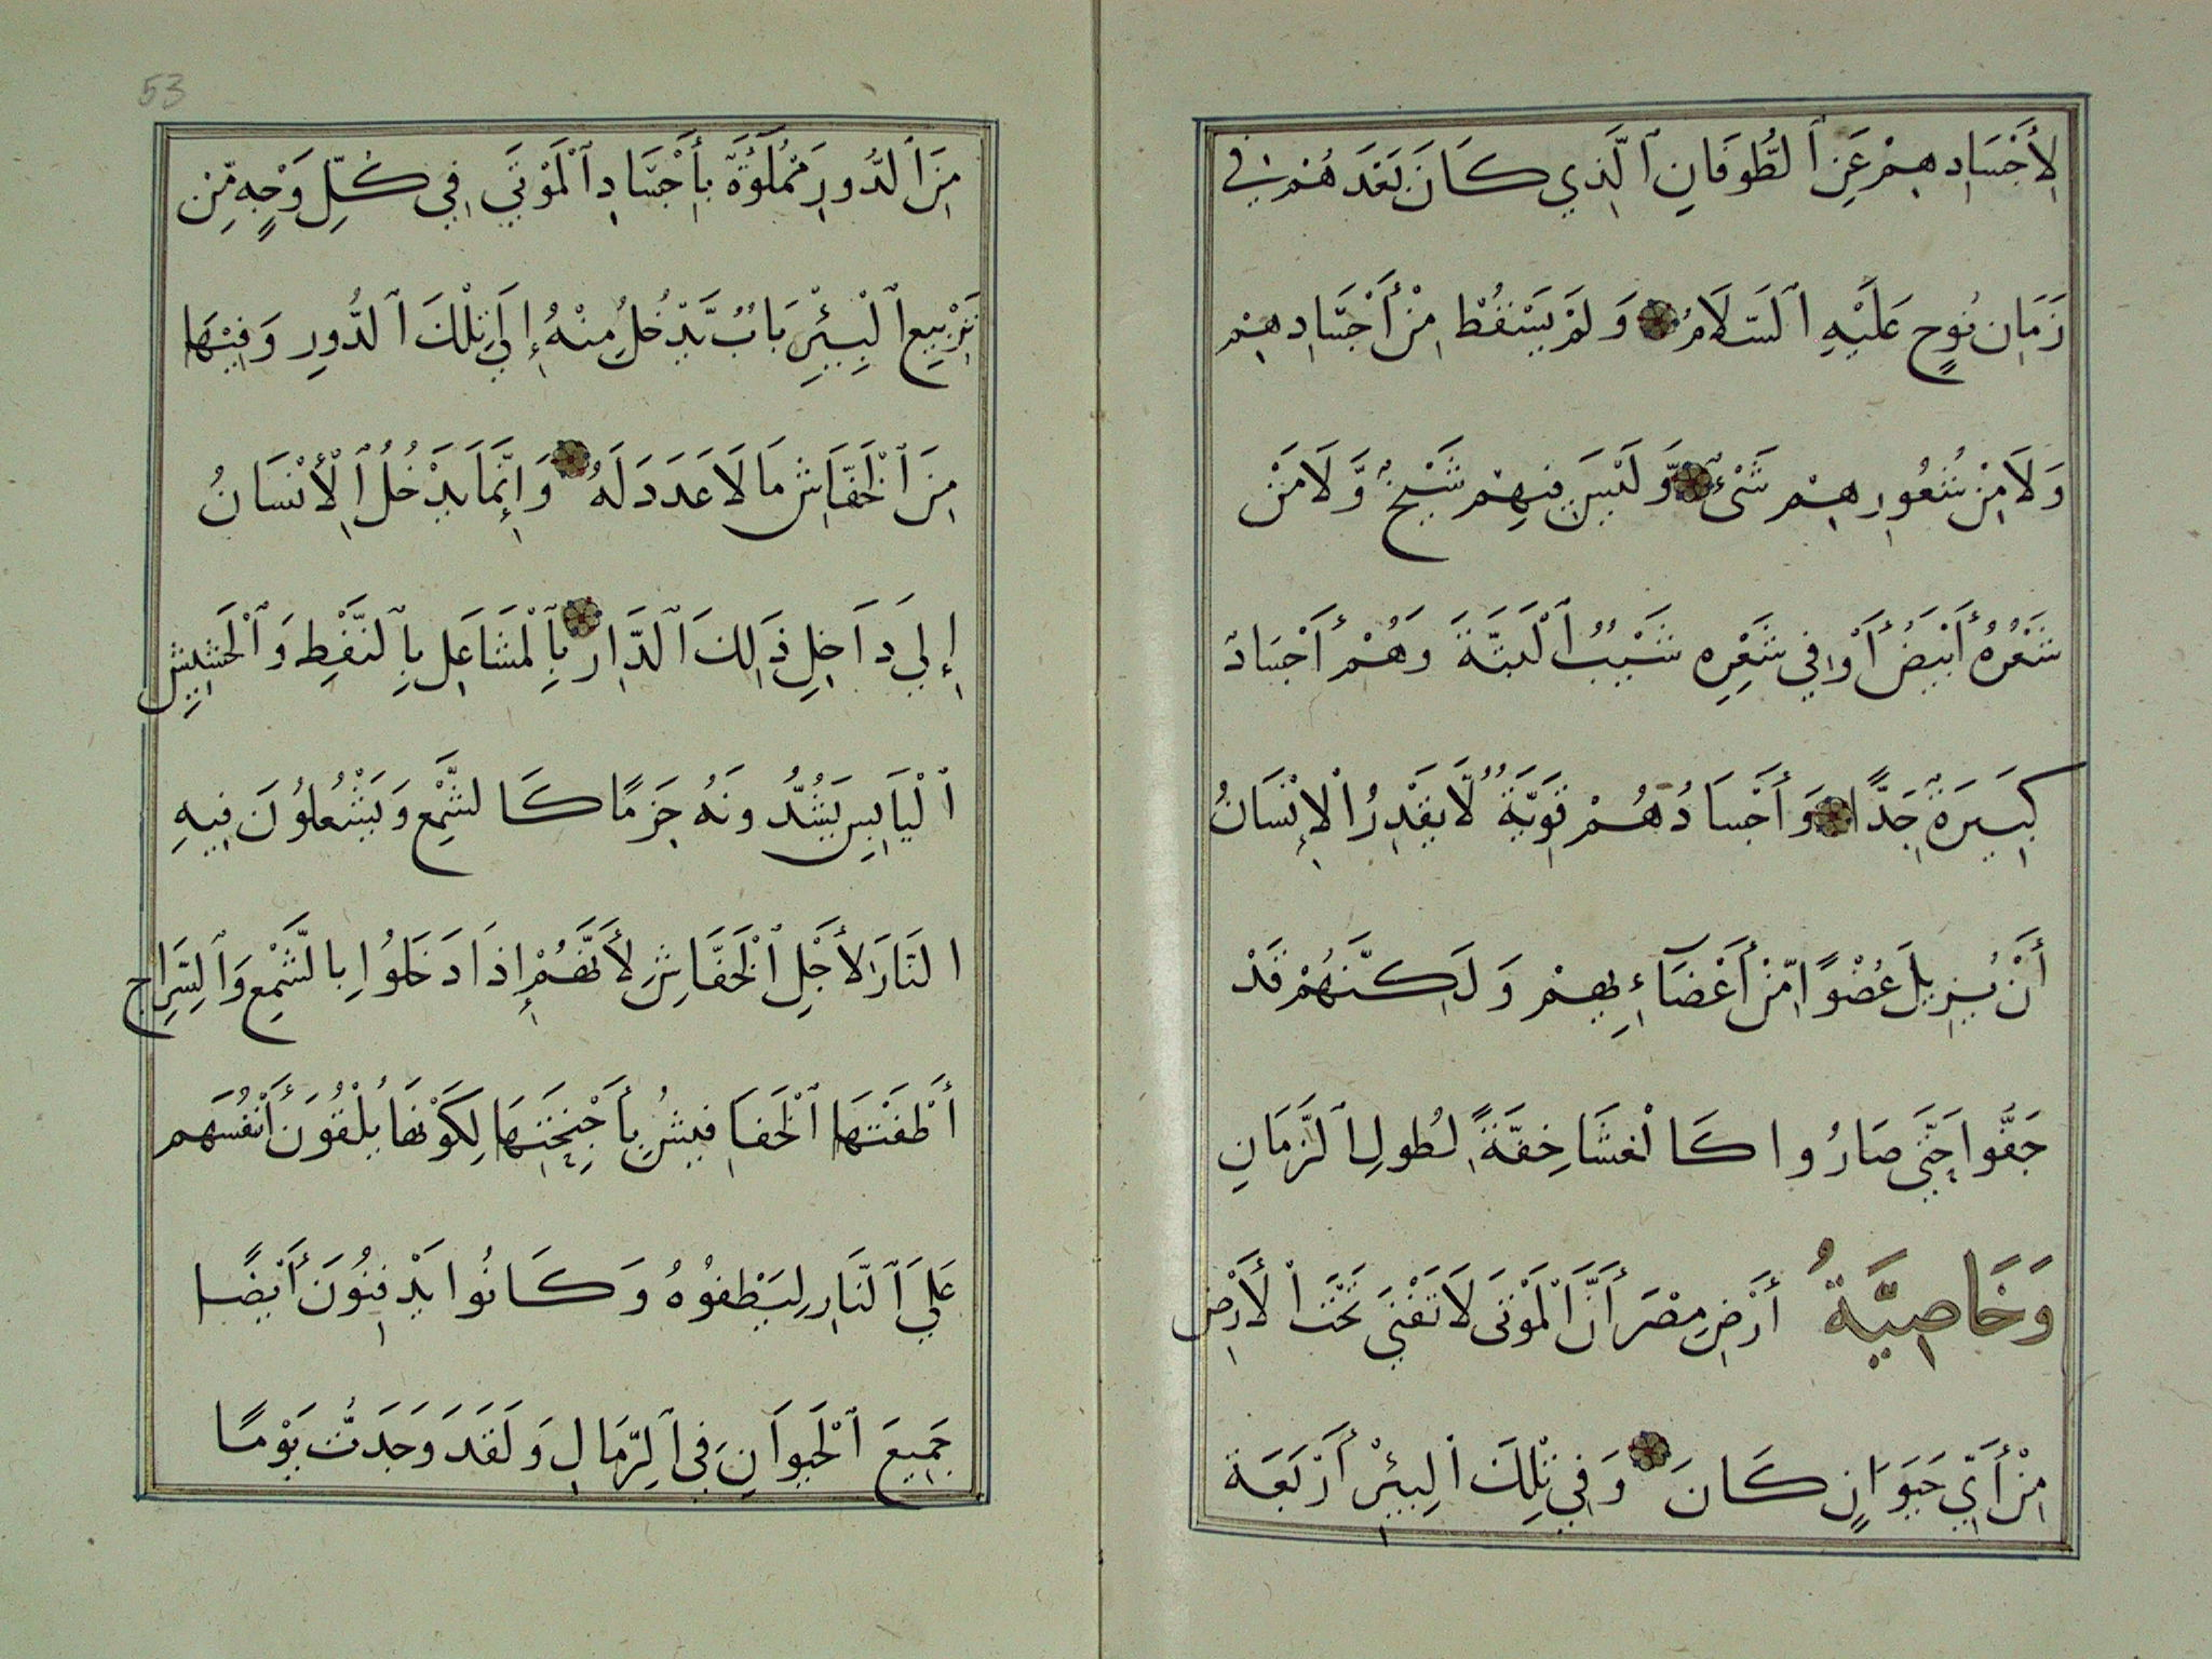 لِأَجْسَادِهِمْ عَنِ ٱلطُّوفَانِ ٱلَّذِي كَانَ بَعْدَهُمْ فِي
زَمَانِ نُوحٍ عَلَيْهِ ٱلسَّلَامُ وَلَمْ يَسْقُطْ مِنْ أَجْسَادِهِمْ
وَلَا مِنْ شُعُورِهِمْ شَىْءٌ وَّلَيْسَ فِيهِمْ شَيْخٌ وَّلَا مَنْ
شَعْرُهُ أَبْيَضُ أَوْ فِي شَعْرِهِ شَيْبُ ٱلْبَتَّةَ وَهُمْ أَجْسَادٌ
كَبِيرَةٌ جَدًّا وَأَجْسَادُهُمْ قَوِيَّةٌ لَّا يَقْدِرُ ٱلْإِنْسَانُ
أَنْ يُزِيلَ عُضْوًا مِّنْ أَعْضَآءِهِمْ وَلَكِنَّهُمْ قَدْ
جَفُّوا حَتَّى صَارُوا كَالْغشَا خِفَّةً لِطُولِ ٱلزَّمَانِ
وَخَاصِيَّةُ أَرْضِ مِصْرَ أَنَّ ٱلْمَوْتَى لَا تَفْنَي تَحْتَ ٱلْأَرْضِ
مِنْ أَيِّ حَيَوَانٍ كَانَ وَفِي تِلْكَ ٱلْبِيْرِ أَرْبَعَة
53
مِنَ ٱلدُّورِ مَمْلُوَّةٌ بِأَجْسَادِ ٱلْمَوْتَي فِي كُلِّ وَجْهٍ مِّنْ
تَرْبِيعِ ٱلْبِيْرِ بَابٌ يَّدْخُلُ مِنْهُ إِلَي تِلْكَ ٱلدُّورِ وَفِيْهَا
مِنَ ٱلْخَفَّاشِ مَا لَا عَدَدَ لَهُ وَإِنَّمَا يَدْخُلُ ٱلْأِنْسَانُ
إِلَي دَاخِلِ ذَلِكَ ٱلدَّارِ بِٱلْمَشَاعِلِ بِٱلنَّفْطِ وَٱلْحَشِيشِ
ٱلْيَابِسِ يَشُدُّونَهُ حَزمًا كَالشَّمْعِ وَيَشْعُلُونَ فِيهِ
النَّارَ لِأَجْلِ ٱلْخَفَّاشِ لِأَنَّهُمْ إِذَا دَخَلُوا بِالشَّمْعِ وَٱلسِّرَاجِ
أَطْفَتْهَا ٱلْخَفَافِيشُ بِأَجْنِحَتِهَا لِكَوْنِهَا يُلْقُونَ أَنْفُسَهم
عَلَي ٱلنَّارِ لِيَطْفُوهُ وَكَانُوا يَدْفِنُونَ أَيْضًا
جَمِيعَ ٱلْحَيَوَانِ فِي ٱلرِّمَالِ وَلَقَدَ وَجَدتُّ يَوْمًا